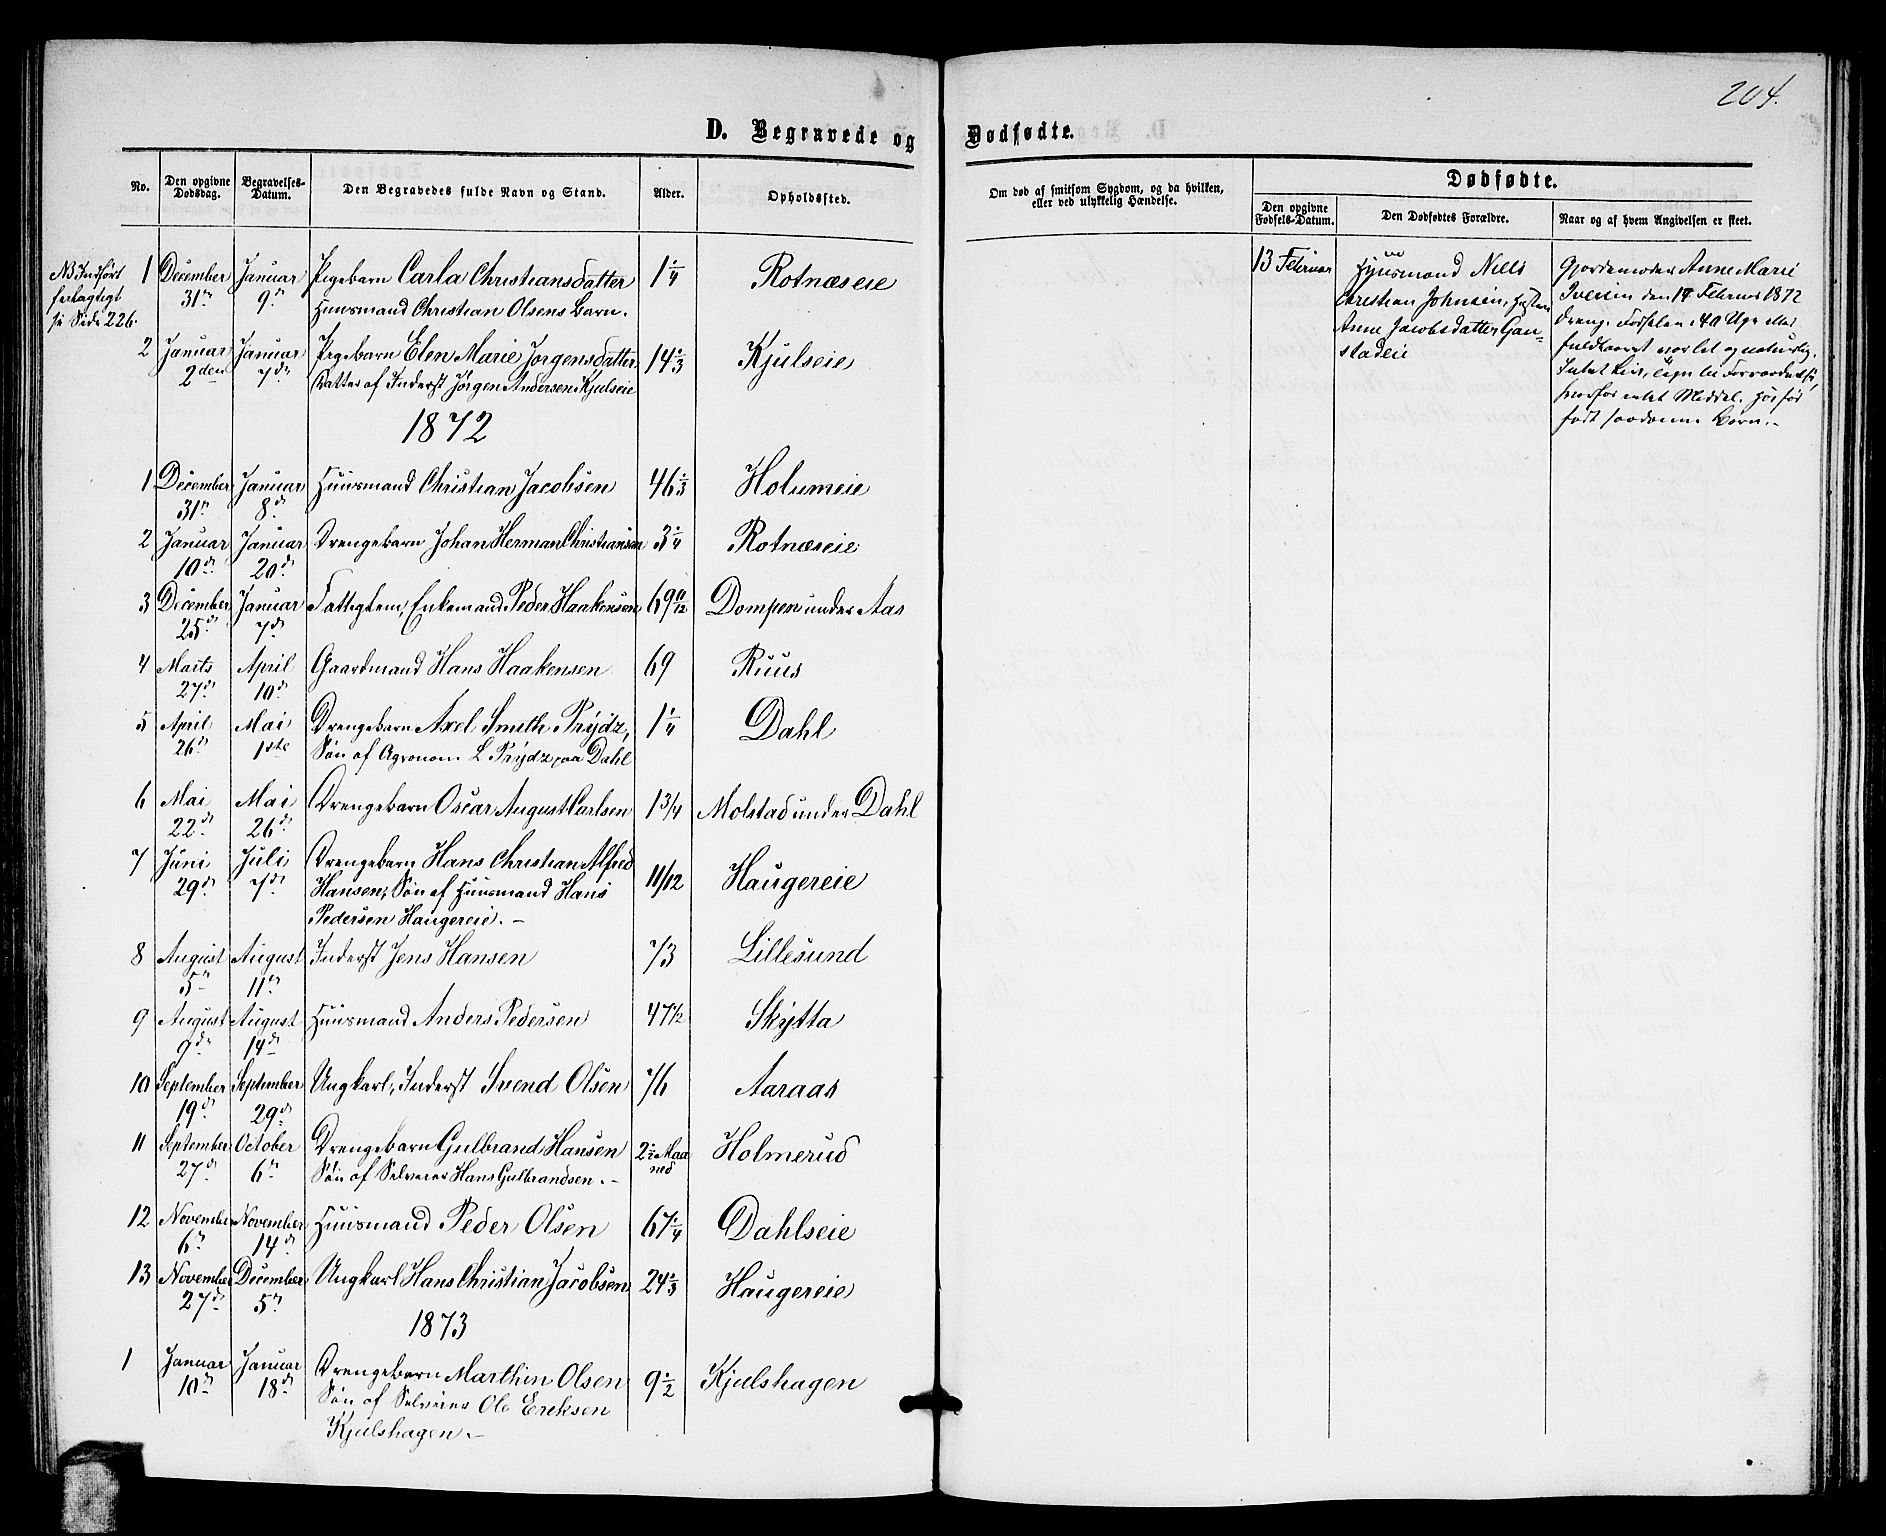 204.
D. Begravede og Dødfødte.
No. Den opgivne Dødsdag. Begravelses-Datum. Den Begravedes fulde Navn og Stand. Alder. Opholdssted. Om død af smitsom Sygdom, og da hvilken, eller ved ulykkelig Hændelse. Dødfødte.
Den opgivne Fødsels-Datum. Den Dødfødtes Forældre. Naar og af hvem Angivelsen er skeet.
NB Indført
feilagtigt
se Side 226.
1 December 31te Januar 9de Pigebarn Carla Christiansdatter 1 1/4 Rotnæseie
Huusmand Christian Olsens Barn.
2 Januar 2den Januar 7de Pigebarn Elen Marie Jørgensdatter 14 2/3 Kjulseie
Datter af Inderst Jørgen Andersen Kjulseie
1872
1 December 31te Januar 8de Huusmand Christian Jacobsen 46 1/3 Holumeie
2 Januar 10de Januar 20de Drengebarn Johan Herman Christiansen 3 1/4 Rotnæseie
3 December 25de Januar 7de Fattiglem, Enkemand Peder Haakensen 69 11/12 Dompen under Aas
4 Marts 27de April 10de Gaardmand Hans Haakensen 69 Ruus
5 April 26de Mai 1ste Drengebarn Axel Smith Prydz, 1 1/4 Dahl
Søn af Agronom L Prydz paa Dahl
6 Mai 22de Mai 26de Drengebarn Oscar August Carlsen 1 3/4 Molstad under Dahl
7 Juni 29de Juli 7de Drengebarn Hans Christian Alfred 11/12 Haugereie
Hansen, Søn af Huusmand Hans
Pedersen Haugereie.-
8 August 5te August 11te Inderst Jens Hansen 73 Lillesund
9 August 9de August 14de Huusmand Anders Pedersen 47 1/2 Skytta
10 September 19de September 29de Ungkarl, Inderst Svend Olsen 76 Aaraas
11 September 27de October 6te Drengebarn Gulbrand Hansen 2 1/2 Maaned Holmerud
Søn af Selveier Hans Gulbrandsen.-
12 November 6te November 14de Huusmand Peder Olsen 67 1/4 Dahlseie
13 November 27de December 5te Ungkarl Hans Christian Jacobsen 24 2/3 Haugereie
1873
1 Januar 10de Januar 18de Drengebarn Marthin Olsen 9 1/2 Kjulshagen
Søn af Selveier Ole Ereksen
Kjulshagen.-
13 Februar
Huusmand Niels
Christian Johnsen, Hustru
Anne Jacobsdatter Gau-
stadeie
Gjordemoder Anne Marie
Iversen den 17 Februar 1872
Dreng. Fødselen 40 Uge eller
fuldbaaret var let og naturlig.
Intet Liv,
hvorfor intet Middel. før
født saadanne Børn.-